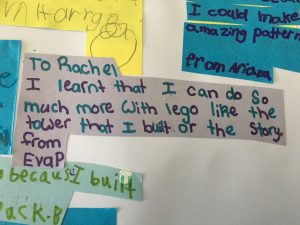 I could make
amazing pattern
From Ariana
To Rachel
I learnt that I can do so
much more with lego like the
tower that I built or the story
from
Eva P
because I built
Jack.B